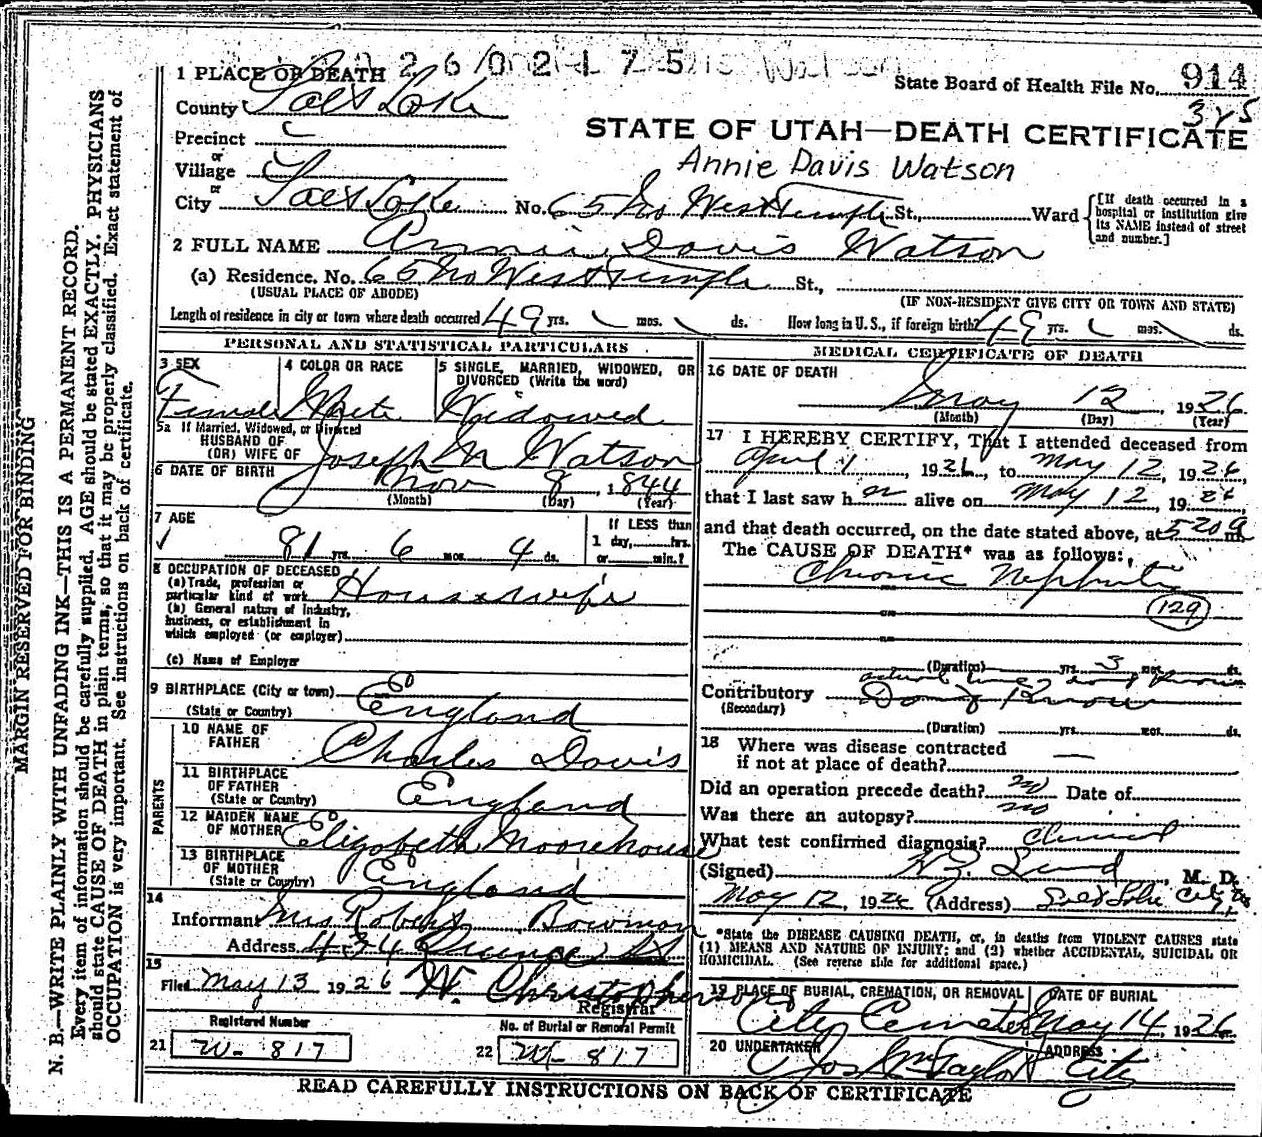 2 6 0 2 1 7 5
1 PLACE OF DEATH
State Board of Health File No. 914
County Salt Lake
325
STATE OF UTAH—DEATH CERTIFICATE
Precinct
or
Village
Annie Davis Watson
or
City Salt Lake No. 65 No West Temple St., Ward
[If death occurred in a hospital or institution give its NAME instead of street and number.]
2 FULL NAME Annie Davis Watson
(a) Residence. No. 65 No West Temple St.,
(USUAL PLACE OF ABODE) (IF NON-RESIDENT GIVE CITY OR TOWN AND STATE)
Length of residence in city or town where death occurred 49 yrs. mos. ds. How long in U. S., if foreign birth? 49 yrs. mos. ds.
PERSONAL AND STATISTICAL PARTICULARS
3 SEX
Female
4 COLOR OR RACE
White
5 SINGLE, MARRIED, WIDOWED, OR
DIVORCED (Write the word)
Widowed
5a If Married, Widowed, or Divorced
HUSBAND OF
(OR) WIFE OF Joseph M Watson
6 DATE OF BIRTH Nov 8, 1844
(Month) (Day) (Year)
7 AGE
81 yrs. 6 mos. 4 ds.
If LESS than
1 day, hrs.
or min.?
8 OCCUPATION OF DECEASED
(a) Trade, profession or
particular kind of work Housewife
(b) General nature of industry,
business, or establishment in
which employed (or employer)
(c) Name of Employer
9 BIRTHPLACE (City or town)
(State or Country) England
PARENTS
10 NAME OF
FATHER Charles Davis
11 BIRTHPLACE
OF FATHER
(State or Country) England
12 MAIDEN NAME
OF MOTHER Elizabeth Moorehouse
13 BIRTHPLACE
OF MOTHER
(State or Country) England
14
Informant Mrs Robert Bowman
Address 434 Quince St
15
Filed May 13 1926 W. Christopherson
Registrar
Registered Number
21 W- 817
No. of Burial or Removal Permit
22 W- 817
MEDICAL CERTIFICATE OF DEATH
16 DATE OF DEATH
May 12, 1926
(Month) (Day) (Year)
17 I HEREBY CERTIFY, That I attended deceased from
April 1, 1926, to May 12, 1926
that I last saw h er alive on May 12, 1926,
and that death occurred, on the date stated above, at 520 a m.
The CAUSE OF DEATH* was as follows:
Chronic Nephritis
129
(Duration) yrs. 3 mos. ds.
Contributory Don't Know
(Secondary)
(Duration) yrs. mos. ds.
18 Where was disease contracted
if not at place of death?
Did an operation precede death? no Date of
Was there an autopsy? no
What test confirmed diagnosis? Clinical
(Signed) Lund, M. D.
May 12, 1926 (Address) Salt Lake City
*State the DISEASE CAUSING DEATH, or, in deaths from VIOLENT CAUSES state
(1) MEANS AND NATURE OF INJURY; and (2) whether ACCIDENTAL, SUICIDAL OR
HOMICIDAL. (See reverse side for additional space.)
19 PLACE OF BURIAL, CREMATION, OR REMOVAL
City Cemetery
DATE OF BURIAL
May 14, 1926
20 UNDERTAKER
Jos Wm Taylor
ADDRESS
City
READ CAREFULLY INSTRUCTIONS ON BACK OF CERTIFICATE
MARGIN RESERVED FOR BINDING
N. B.—WRITE PLAINLY WITH UNFADING INK—THIS IS A PERMANENT RECORD.
Every item of information should be carefully supplied. AGE should be stated EXACTLY. PHYSICIANS
should state CAUSE OF DEATH in plain terms, so that it may be properly classified. Exact statement of
OCCUPATION is very important. See instructions on back of certificate.